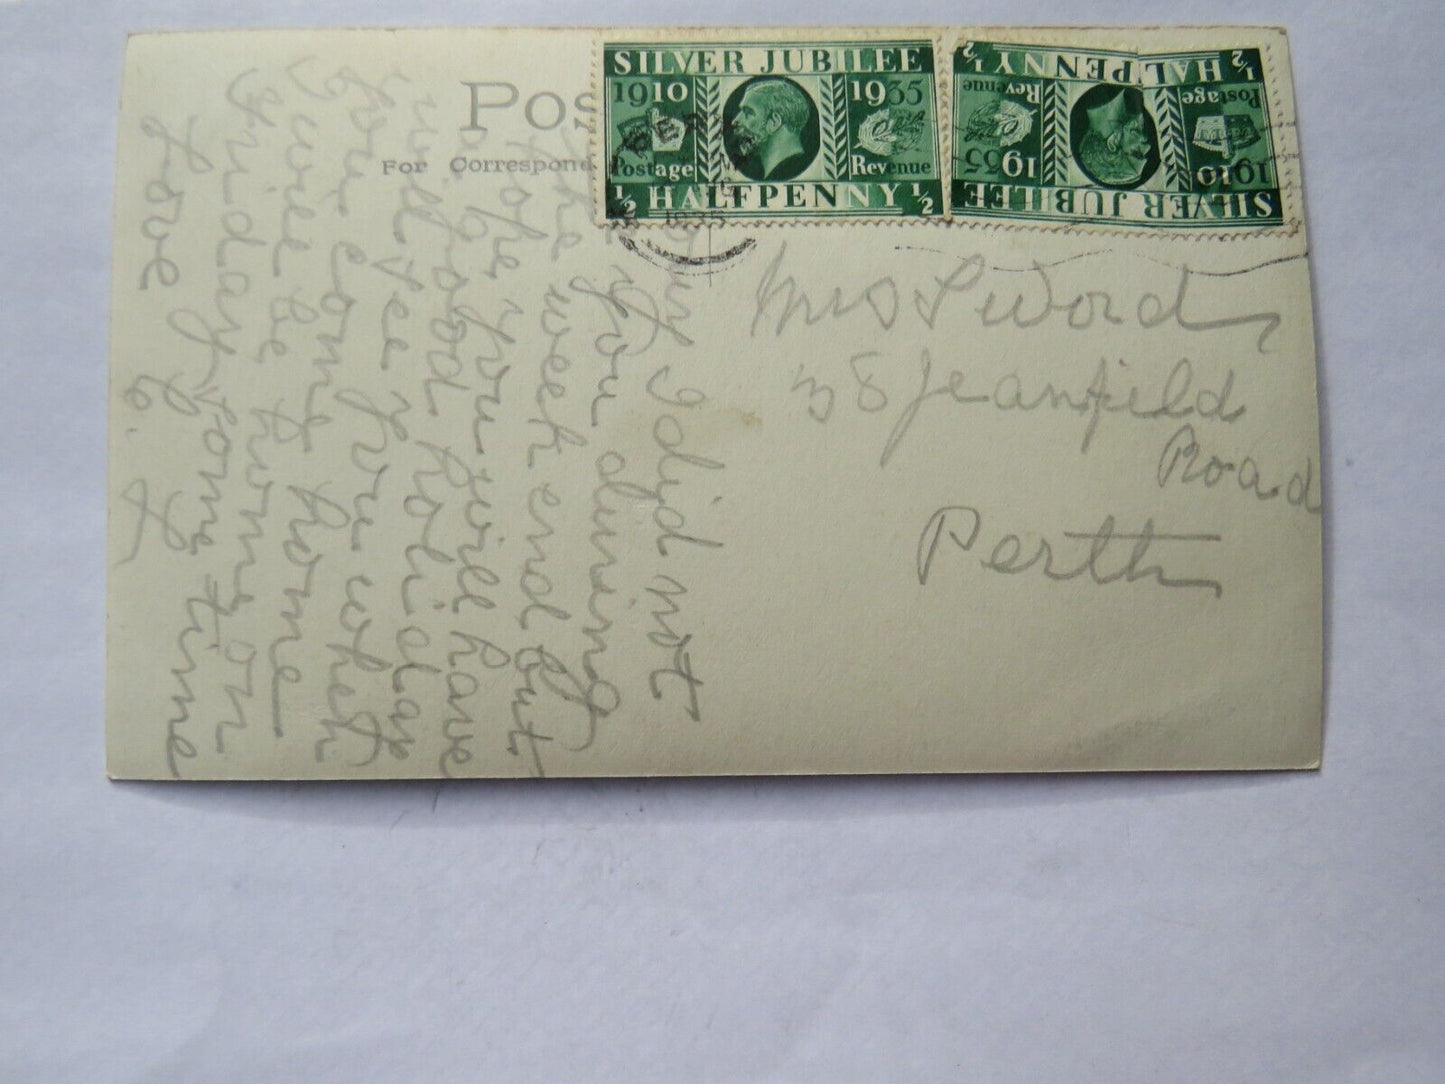 POS
FOR CORRESPOND
SILVER JUBILEE
1910 1935
Postage Revenue
½ HALFPENNY ½
SILVER JUBILEE
1910 1935
Postage Revenue
½ HALFPENNY ½
PER
1935
Mrs L Word
38 Jeanfield
Road
Perth
I did not
you during
the week end but
Hope you will have
a good holiday
will see you when
you come home
I will be home on
Friday some time
Love